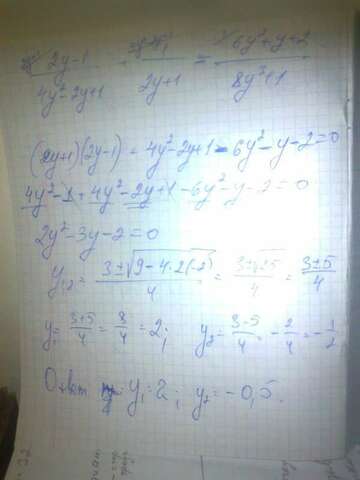 2y-1 / 4y²-2y+1 + 1 / 2y+1 = 6y²+y+2 / 8y³+1
(2y+1)(2y-1) + 4y²-2y+1 - 6y²-y-2=0
4y²-1+4y²-2y+1-6y²-y-2=0
2y²-3y-2=0
y₁,₂ = 3±√9-4·2(-2) / 4 = 3±√25 / 4 = 3±5 / 4
y₁ = 3+5 / 4 = 8 / 4 = 2; y₂ = 3-5 / 4 - 2 / 4 = - 1 / 2
Ответ: y₁=2; y₂=-0,5.